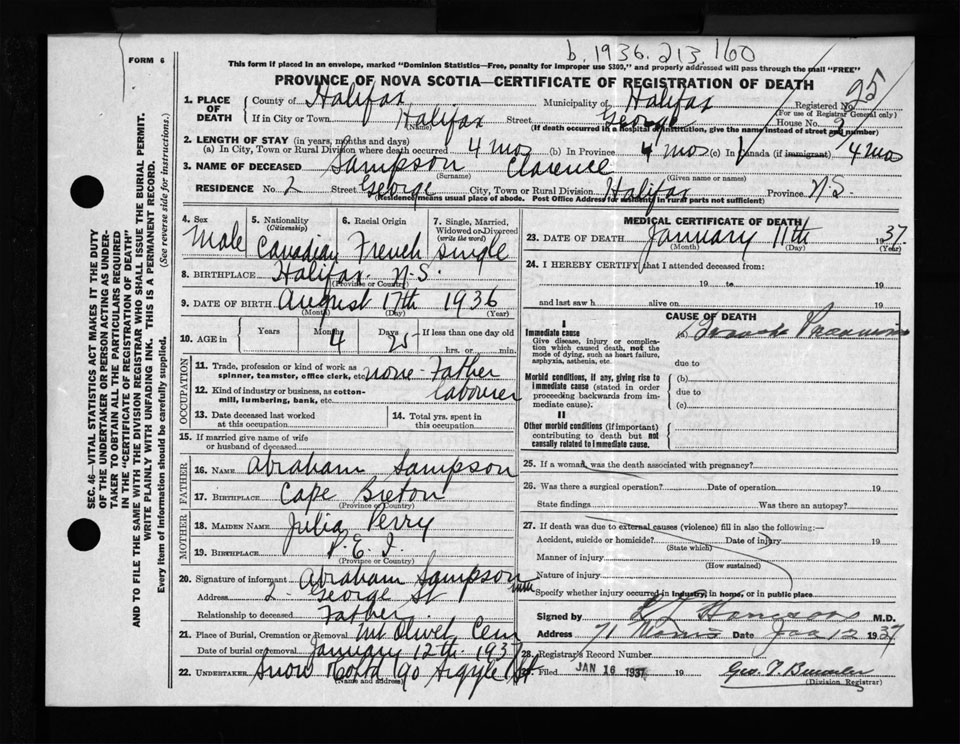 b. 1936. 213,160
FORM 6
This form if placed in an envelope, marked "Dominion Statistics—Free, penalty for improper use $300," and properly addressed will pass through the mail "FREE"
PROVINCE OF NOVA SCOTIA—CERTIFICATE OF REGISTRATION OF DEATH
95
1. PLACE OF DEATH
County of Halifax Municipality of Halifax Registered No.
(For use of Registrar General only)
If in City or Town Halifax Street George House No. 2
(Name) (If death occurred in a hospital or institution, give the name instead of street and number)
2. LENGTH OF STAY (in years, months and days)
(a) In City, Town or Rural Division where death occurred 4 mos (b) In Province 4 mos (c) In Canada (if immigrant) 4 mos
3. NAME OF DECEASED Sampson Clarence
(Surname) (Given name or names)
RESIDENCE No. 2 Street George City, Town or Rural Division Halifax Province N.S.
(Residence means usual place of abode. Post Office Address for residents in rural parts not sufficient)
4. Sex Male
5. Nationality (Citizenship) Canadian
6. Racial Origin French
7. Single, Married, Widowed or Divorced (write the word) Single
8. BIRTHPLACE Halifax N.S.
(Province or Country)
9. DATE OF BIRTH August 17th 1936
(Month) (Day) (Year)
10. AGE in Years Months 4 Days 25 If less than one day old
hrs. or min.
OCCUPATION
11. Trade, profession or kind of work as spinner, teamster, office clerk, etc. none - Father
12. Kind of industry or business, as cotton-mill, lumbering, bank, etc. labourer
13. Date deceased last worked at this occupation
14. Total yrs. spent in this occupation
15. If married give name of wife or husband of deceased
FATHER
16. NAME Abraham Sampson
17. BIRTHPLACE Cape Breton
(Province or Country)
MOTHER
18. MAIDEN NAME Julia Perry
19. BIRTHPLACE P.E.I.
(Province or Country)
20. Signature of informant Abraham Sampson
Address 2 George St
Relationship to deceased Father
21. Place of Burial, Cremation or Removal Mt Olivet Cem
Date of burial or removal January 12th 1937
22. UNDERTAKER Snow Co Ltd 90 Argyle St
(Name and address)
MEDICAL CERTIFICATE OF DEATH
23. DATE OF DEATH January 11th 1937
(Month) (Day) (Year)
24. I HEREBY CERTIFY that I attended deceased from:
19 to 19
and last saw h alive on 19
CAUSE OF DEATH
I
Immediate cause Broncho Pneumonia
Give disease, injury or complication which caused death, not the mode of dying, such as heart failure, asphyxia, asthenia, etc.
due to
Morbid conditions, if any, giving rise to immediate cause (stated in order proceeding backwards from immediate cause).
(b)
due to
(c)
II
Other morbid conditions (if important) contributing to death but not causally related to immediate cause.
25. If a woman, was the death associated with pregnancy?
26. Was there a surgical operation? Date of operation 19
State findings Was there an autopsy?
27. If death was due to external causes (violence) fill in also the following:—
Accident, suicide or homicide? Date of injury 19
(State which)
Manner of injury
(How sustained)
Nature of injury
Specify whether injury occurred in industry, in home, or in public place
Signed by M.D.
Address 71 Morris Date Jan 12 1937
28. Registrar's Record Number
Filed JAN 16 1937 19
(Division Registrar)
SEC. 46—VITAL STATISTICS ACT MAKES IT THE DUTY
OF THE UNDERTAKER OR PERSON ACTING AS UNDER-
TAKER TO OBTAIN ALL THE PARTICULARS REQUIRED
IN THE "CERTIFICATE OF REGISTRATION OF DEATH"
AND TO FILE THE SAME WITH THE DIVISION REGISTRAR WHO SHALL ISSUE THE BURIAL PERMIT.
WRITE PLAINLY WITH UNFADING INK. THIS IS A PERMANENT RECORD.
Every item of information should be carefully supplied. (See reverse side for instructions.)